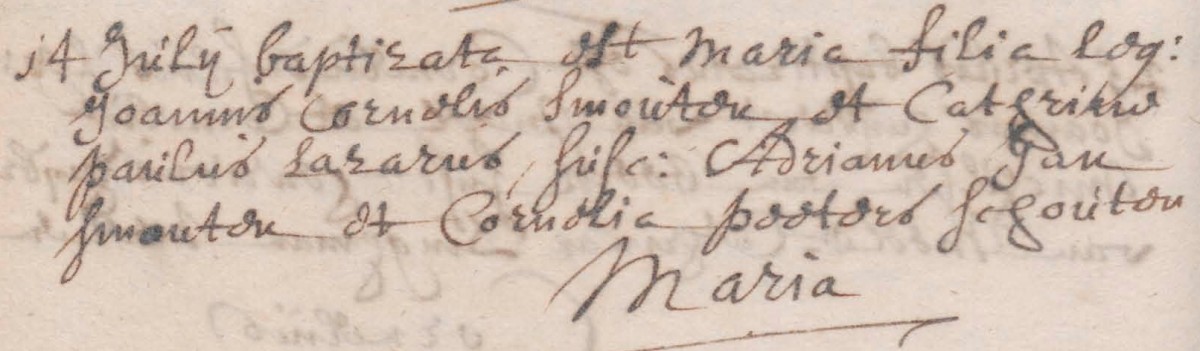 14 Julij baptizata est Maria filia leg:
Joannis Cornelis Smouten et Cathrine
paulus Lazarus, susc: Adrianus Jan
smouten et Cornelia peeters schouten
Maria